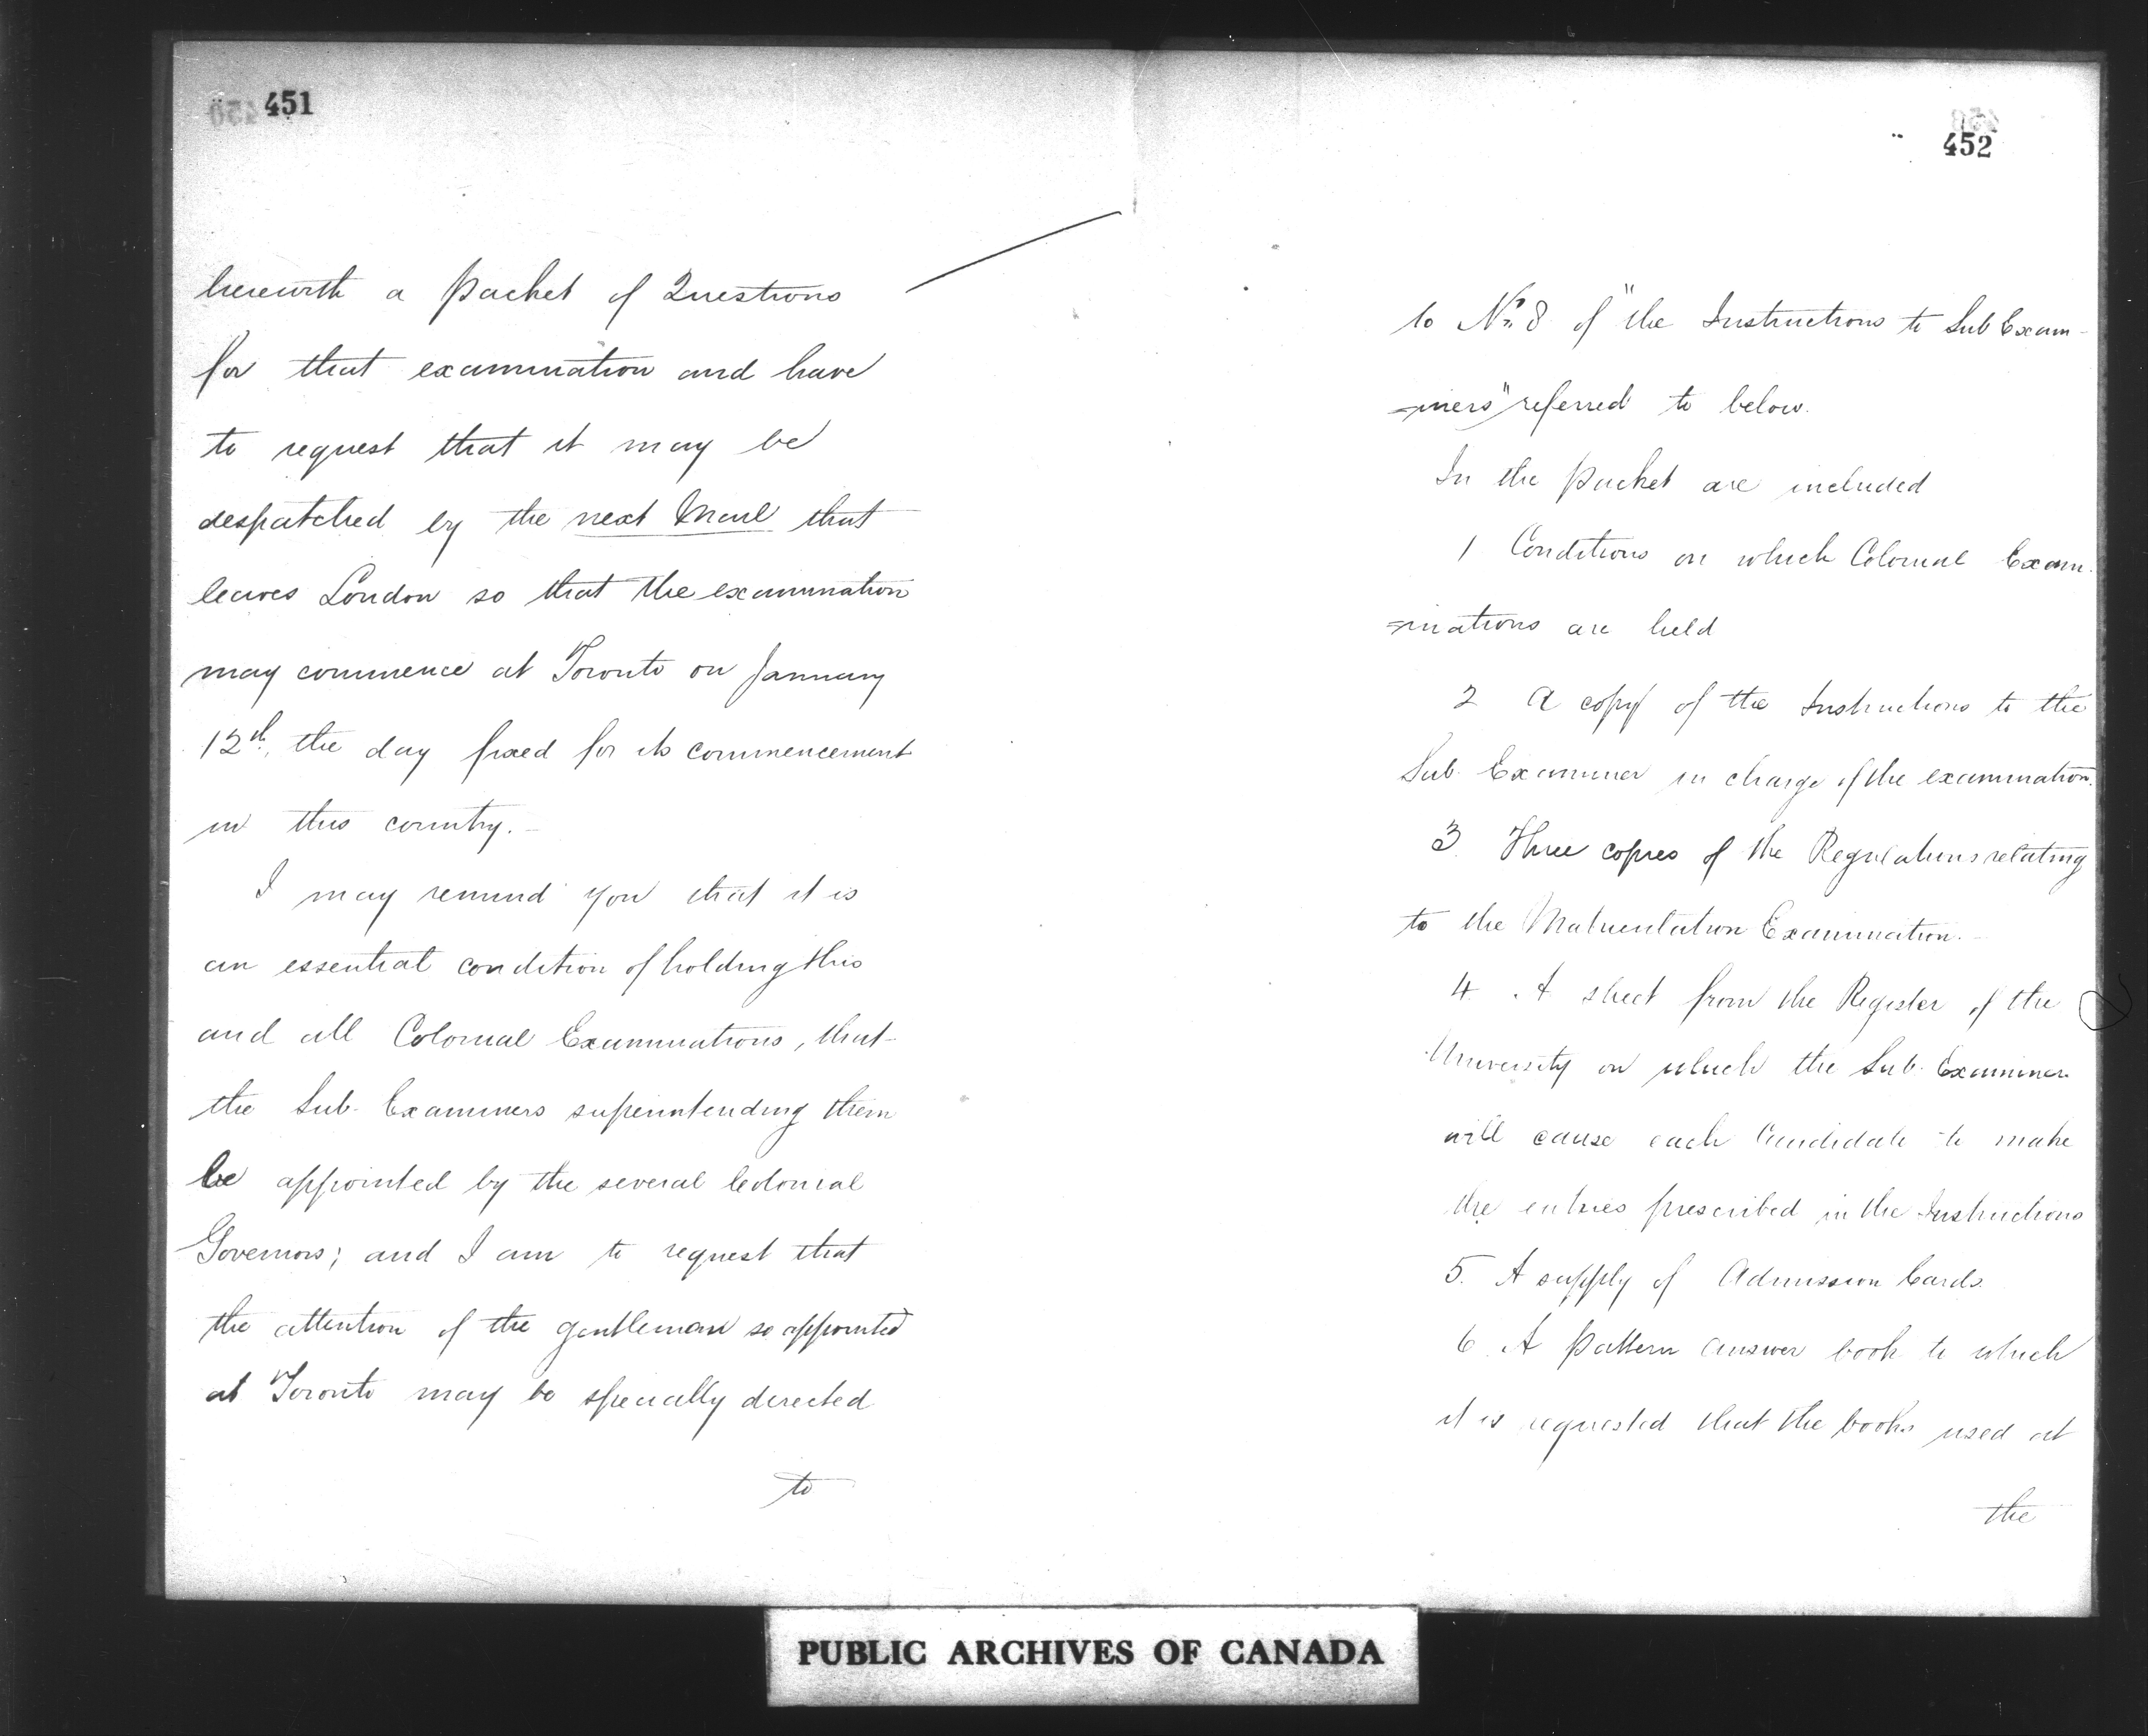 451
herewith a packet of Questions
for that examination and have
to request that it may be
despatched by the next Mail that
leaves London so that the examination
may commence at Toronto on January
12th, the day fixed for its commencement
in this country. –
I may remind you that it is
an essential condition of holding this
and all Colonial Examinations, that
the Sub-Examiners superintending them
be appointed by the several Colonial
Governors; and I am to request that
the attention of the gentleman so appointed
at Toronto may be specially directed
to
452
to No. 8 of "the Instructions to Sub Exam-
=iners" referred to below.
In the packet are included
1 Conditions on which Colonial Exam-
=inations are held
2 A copy of the Instructions to the
Sub-Examiner in charge of the examination.
3. Three copies of the Regulations relating
to the Matriculation Examination. –
4. A sheet from the Register of the
University on which the Sub-Examiner
will cause each Candidate to make
the entries prescribed in the Instructions
5. A supply of Admission Cards.
6. A pattern answer book to which
it is requested that the books used at
the
PUBLIC ARCHIVES OF CANADA